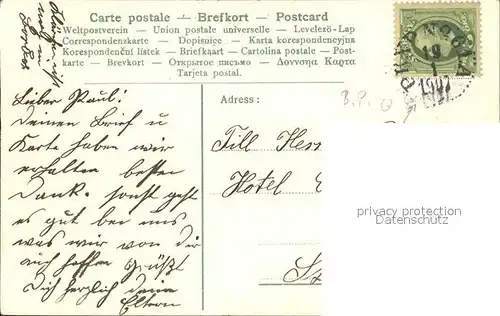 Carte postale – Brefkort – Postcard
Weltpostverein – Union postale universelle – Levelező-Lap
Correspondenskarte – Dopisnice – Karta korespondencyjna
Korespondenční lístek – Briefkaart – Cartolina postale – Post-
karte – Brevkort – Открытое письмо – Δονυσηα Καρτα
Tarjeta postal.
Adress:
B.P.
1907
Lieber Paul!
deinen Brief u
Karte haben wir
erhalten besten
Dank. sonst geht
es gut bei uns
was wir von dir
auch hoffen Grüßt
Dich herzlich deine
Eltern
Till
Hotel
privacy protection
Datenschutz